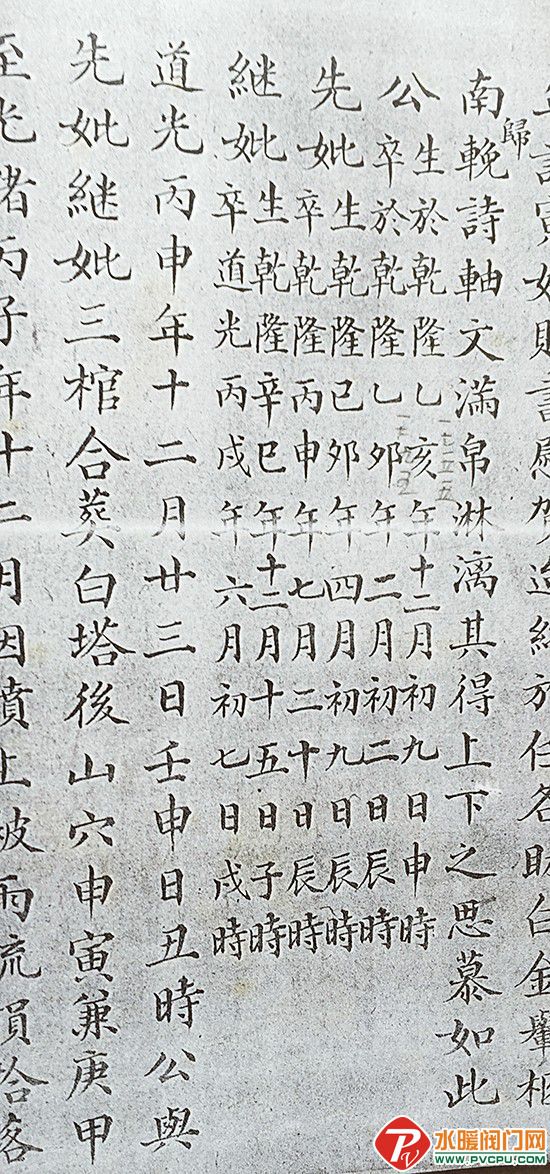 寅好慰賀迨終於任各賻白金轝柩
歸
南輓詩軸文滿帛淋漓其得上下之思慕如此
公生於乾隆乙亥年十二月初九日申時
卒於乾隆乙卯年二月初二日辰時
先妣生乾隆己卯年四月初九日辰時
卒乾隆丙申年七月二十日辰時
継妣生乾隆辛巳年十二月十五日子時
卒道光丙戌年六月初七日戌時
道光丙申年十二月廿三日壬申日丑時公與
先妣継妣三棺合葬白塔後山穴申寅兼庚甲
至光緒丙子年十二月因墳上被雨流損拾落
水暖阀门网
WWW.PVCPU.COM